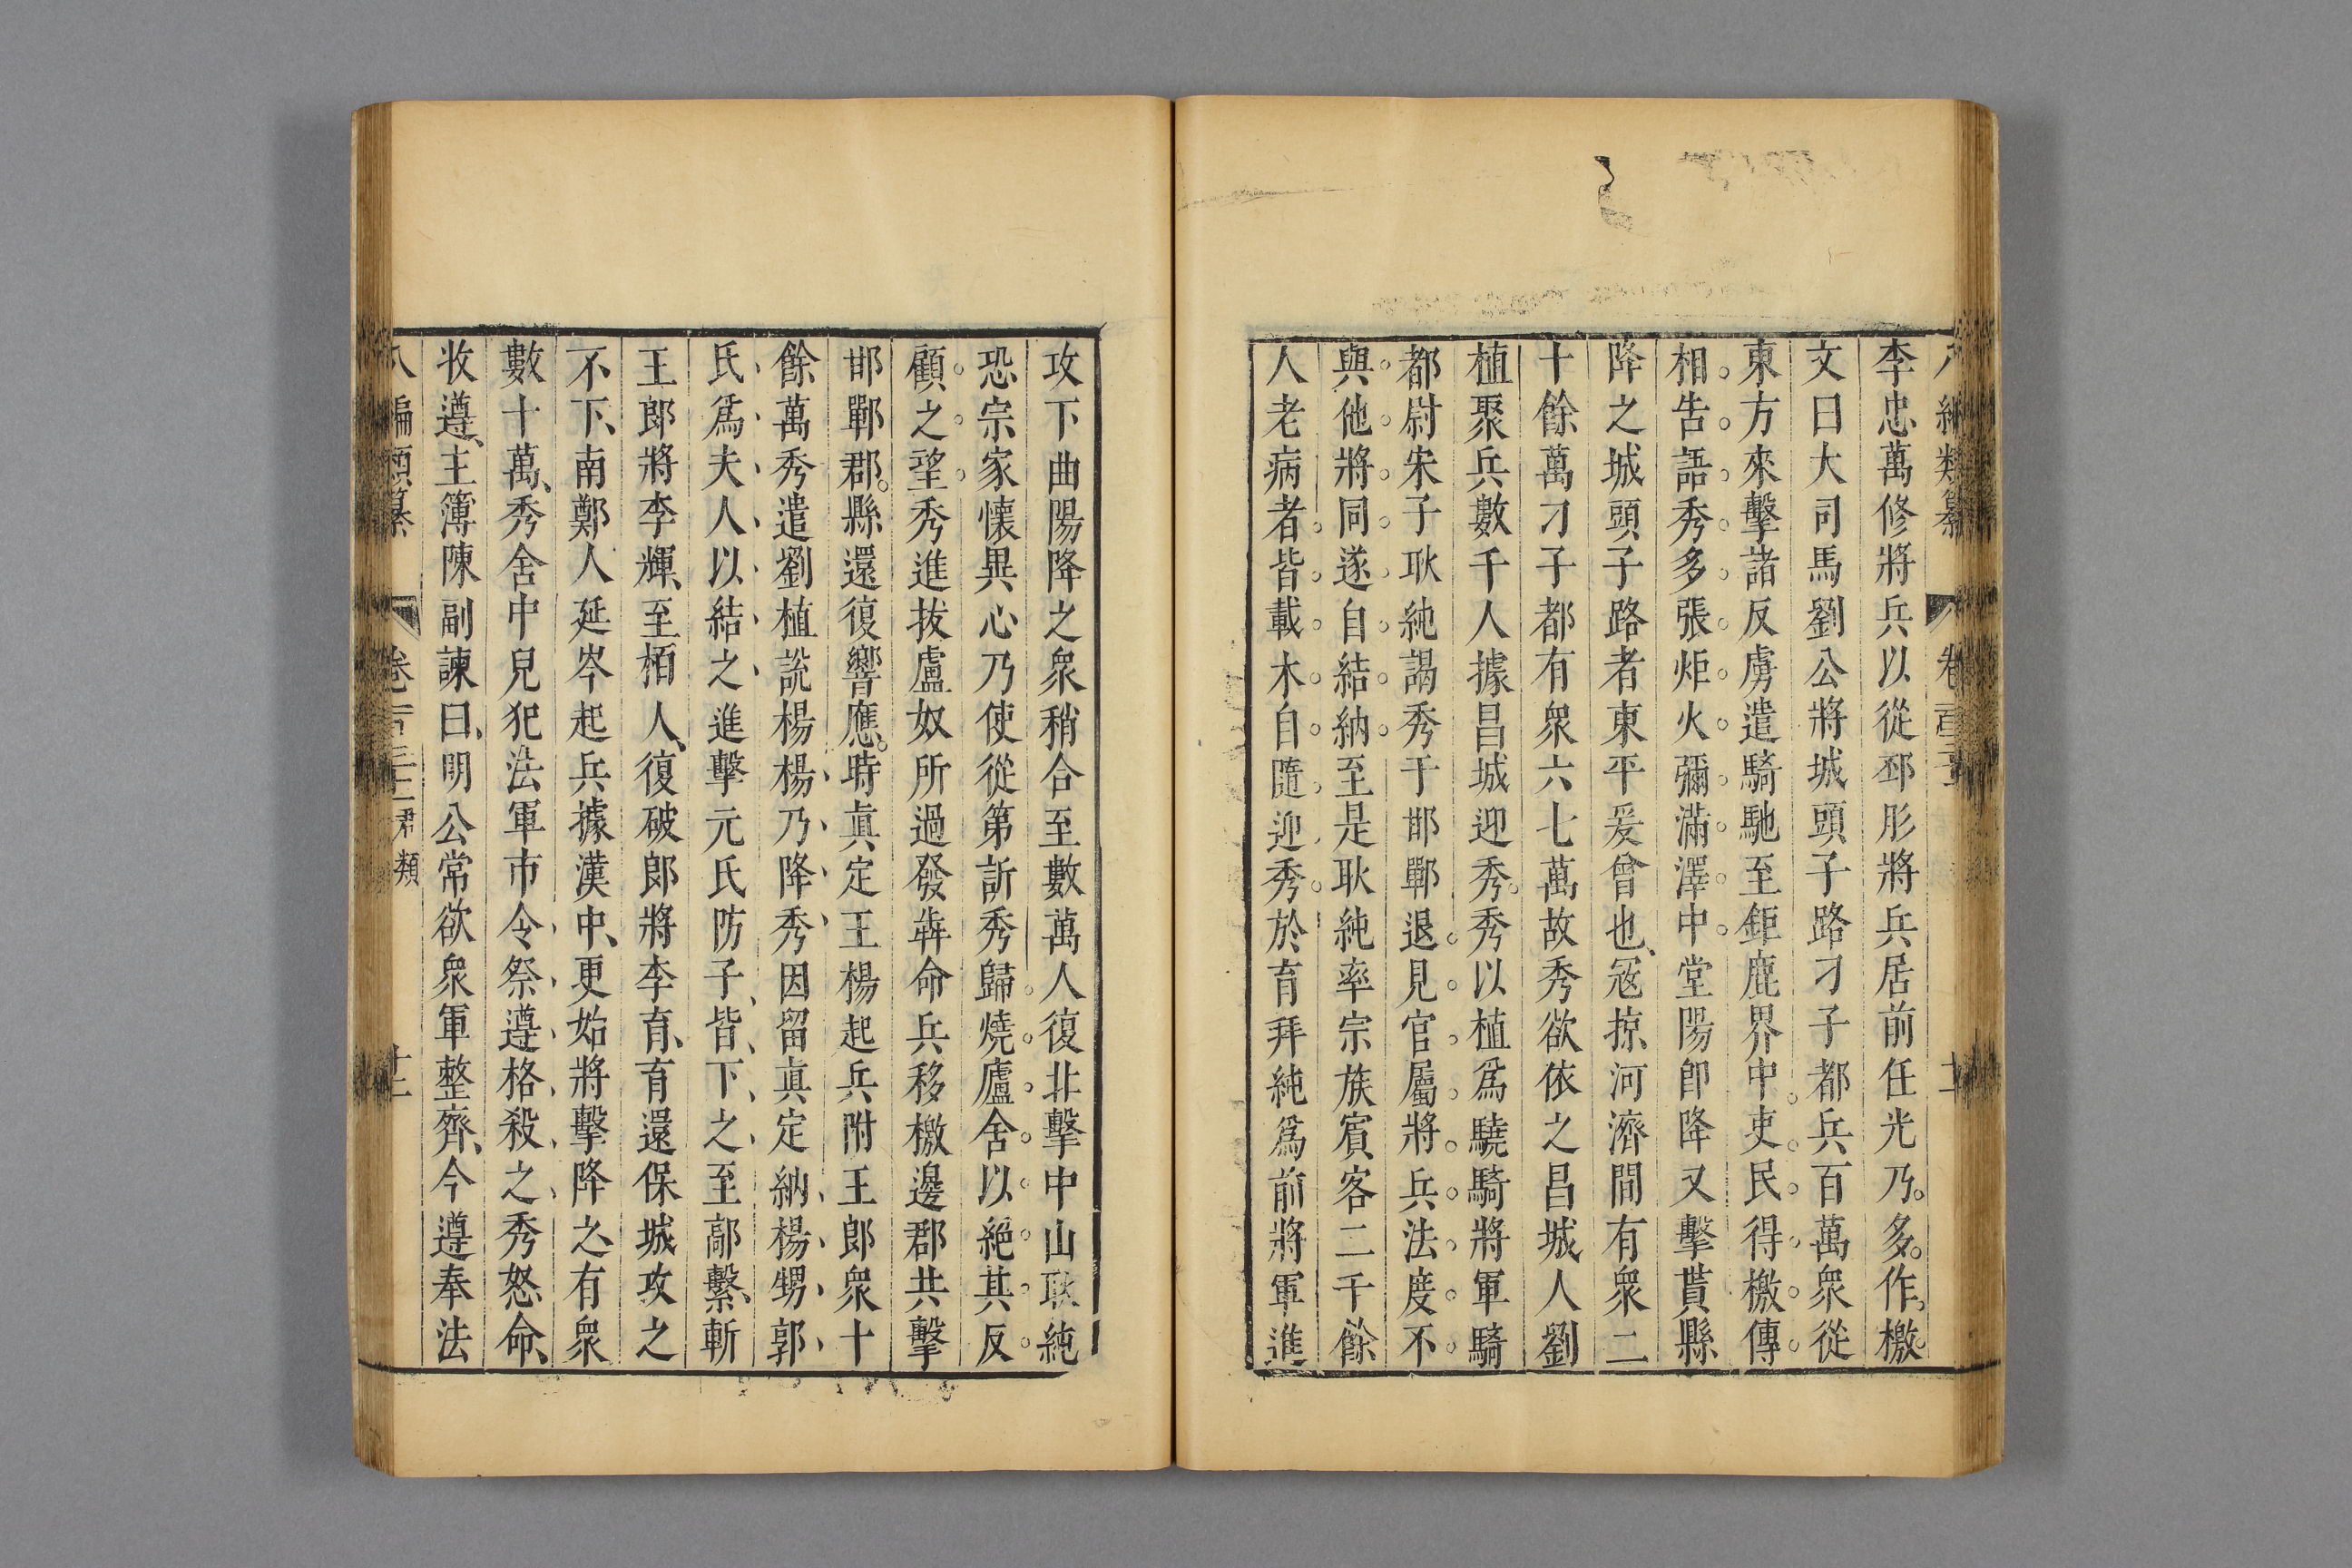 李忠萬修將兵以從邳彤將兵居前任光乃多作檄
文曰大司馬劉公將城頭子路刁子都兵百萬衆從
東方來擊諸反虜遣騎馳至鉅鹿界中吏民得檄傳
相告語秀多張炬火彌滿澤中堂陽卽降又擊貰縣
降之城頭子路者東平爰曾也、冦掠河濟間有衆二
十餘萬刁子都有衆六七萬故秀欲依之昌城人劉
植聚兵數千人據昌城迎秀秀以植爲驍騎將軍騎
都尉宋子耿純謁秀于邯鄲退見官屬將兵法度不
與他將同遂自結納至是耿純率宗族賓客二千餘
人老病者皆載木自隨迎秀於育拜純爲前將軍進
攻下曲陽降之衆稍合至數萬人復北擊中山耿純
恐宗家懷異心乃使從第訢秀歸燒廬舍以絕其反
顧之望秀進拔盧奴所過發犇命兵移檄邊郡共擊
邯鄲郡縣還復響應時眞定王楊起兵附王郎衆十
餘萬秀遣劉植說楊楊乃降秀因留眞定納楊甥郭
氏爲夫人以結之進擊元氏防子皆下之至鄗繫、斬
王郎將李輝、至栢人、復破郎將李育、育還保城攻之
不下、南鄭人延岑起兵據漢中、更始將擊降之、有衆
數十萬、秀舍中兒犯法軍市令祭遵格殺之秀怒命、
收遵、主簿陳副諫曰、明公常欲衆軍整齊、今遵奉法
編類纂 卷 類